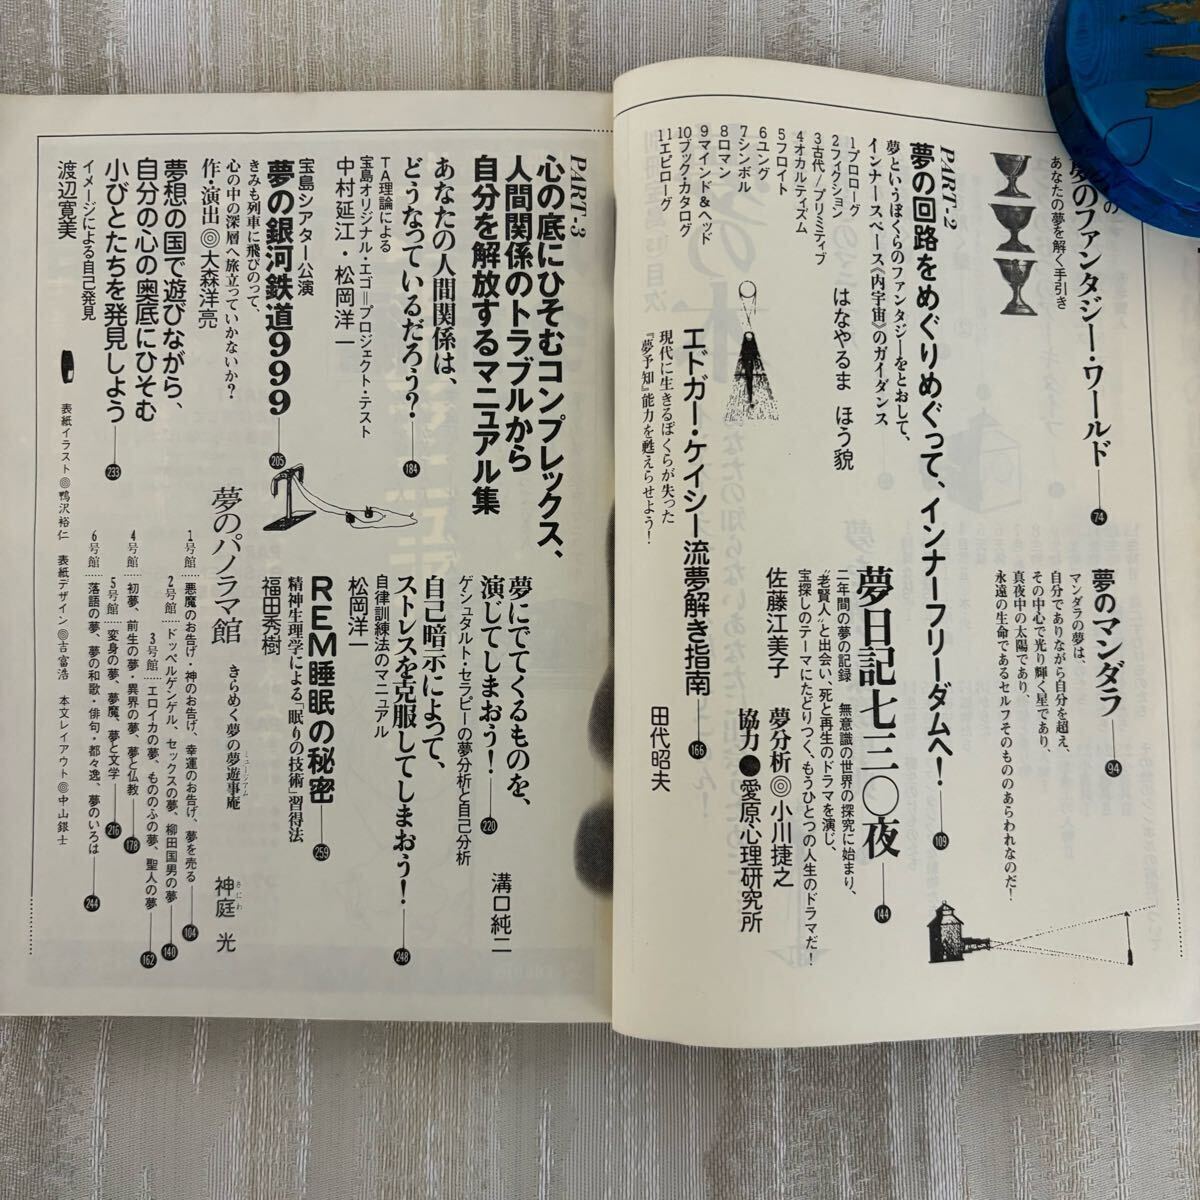 夢のファンタジー・ワールド
あなたの夢を解く手引き
74
夢のマンダラ
94
マンダラの夢は、
自分でありながら自分を超え、
その中心で光り輝く星であり、
真夜中の太陽であり、
永遠の生命であるセルフそのもののあらわれなのだ!
PART-2
夢の回路をめぐりめぐって、インナーフリーダムへ!
109
夢というぼくらのファンタジーをとおして、
インナースペース《内宇宙》のガイダンス
はなやるま ほう貌
1プロローグ
2フィクション
3古代/プリミティブ
4オカルティズム
5フロイト
6ユング
7シンボル
8ロマン
9マインド&ヘッド
10ブック・カタログ
11エピローグ
夢日記七三〇夜
144
二年間の夢の記録 無意識の世界の探究に始まり、
“老賢人”と出会い、死と再生のドラマを演じ、
宝探しのテーマにたどりつく、もうひとつの人生のドラマだ!
佐藤江美子
夢分析◎小川捷之
協力●愛原心理研究所
エドガー・ケイシー流夢解き指南
166
現代に生きるぼくらが失った
『夢予知』能力を甦えらせよう!
田代昭夫
PART-3
心の底にひそむコンプレックス、
人間関係のトラブルから
自分を解放するマニュアル集
あなたの人間関係は、
どうなっているだろう?
184
TA理論による
宝島オリジナル・エゴ=プロジェクト・テスト
中村延江・松岡洋一
宝島シアター公演
夢の銀河鉄道999
205
きみも列車に飛びのって、
心の中の深層へ旅立っていかないか?
作・演出◎大森洋亮
夢想の国で遊びながら、
自分の心の奥底にひそむ
小びとたちを発見しよう
233
イメージによる自己発見
渡辺寛美
夢にでてくるものを、
演じてしまおう!
220
ゲシュタルト・セラピーの夢分析と自己分析
溝口純二
自己暗示によって、
ストレスを克服してしまおう!
248
自律訓練法のマニュアル
松岡洋一
REM睡眠の秘密
259
精神生理学による「眠りの技術」習得法
福田秀樹
夢のパノラマ館
きらめく夢の夢遊事庵
ミュージアム
神庭 光
さにわ
1号館……悪魔のお告げ・神のお告げ、幸運のお告げ、夢を売る
104
2号館……ドッペルゲンゲル、セックスの夢、柳田国男の夢
140
3号館……エロイカの夢、もののふの夢、聖人の夢
162
4号館……初夢、前生の夢・異界の夢、夢と仏教
178
5号館……変身の夢、夢魔、夢と文学
216
6号館……落語の夢、夢の和歌・俳句・都々逸、夢のいろは
244
表紙イラスト◎鴨沢裕仁 表紙デザイン◎吉富浩 本文レイアウト◎中山銀士